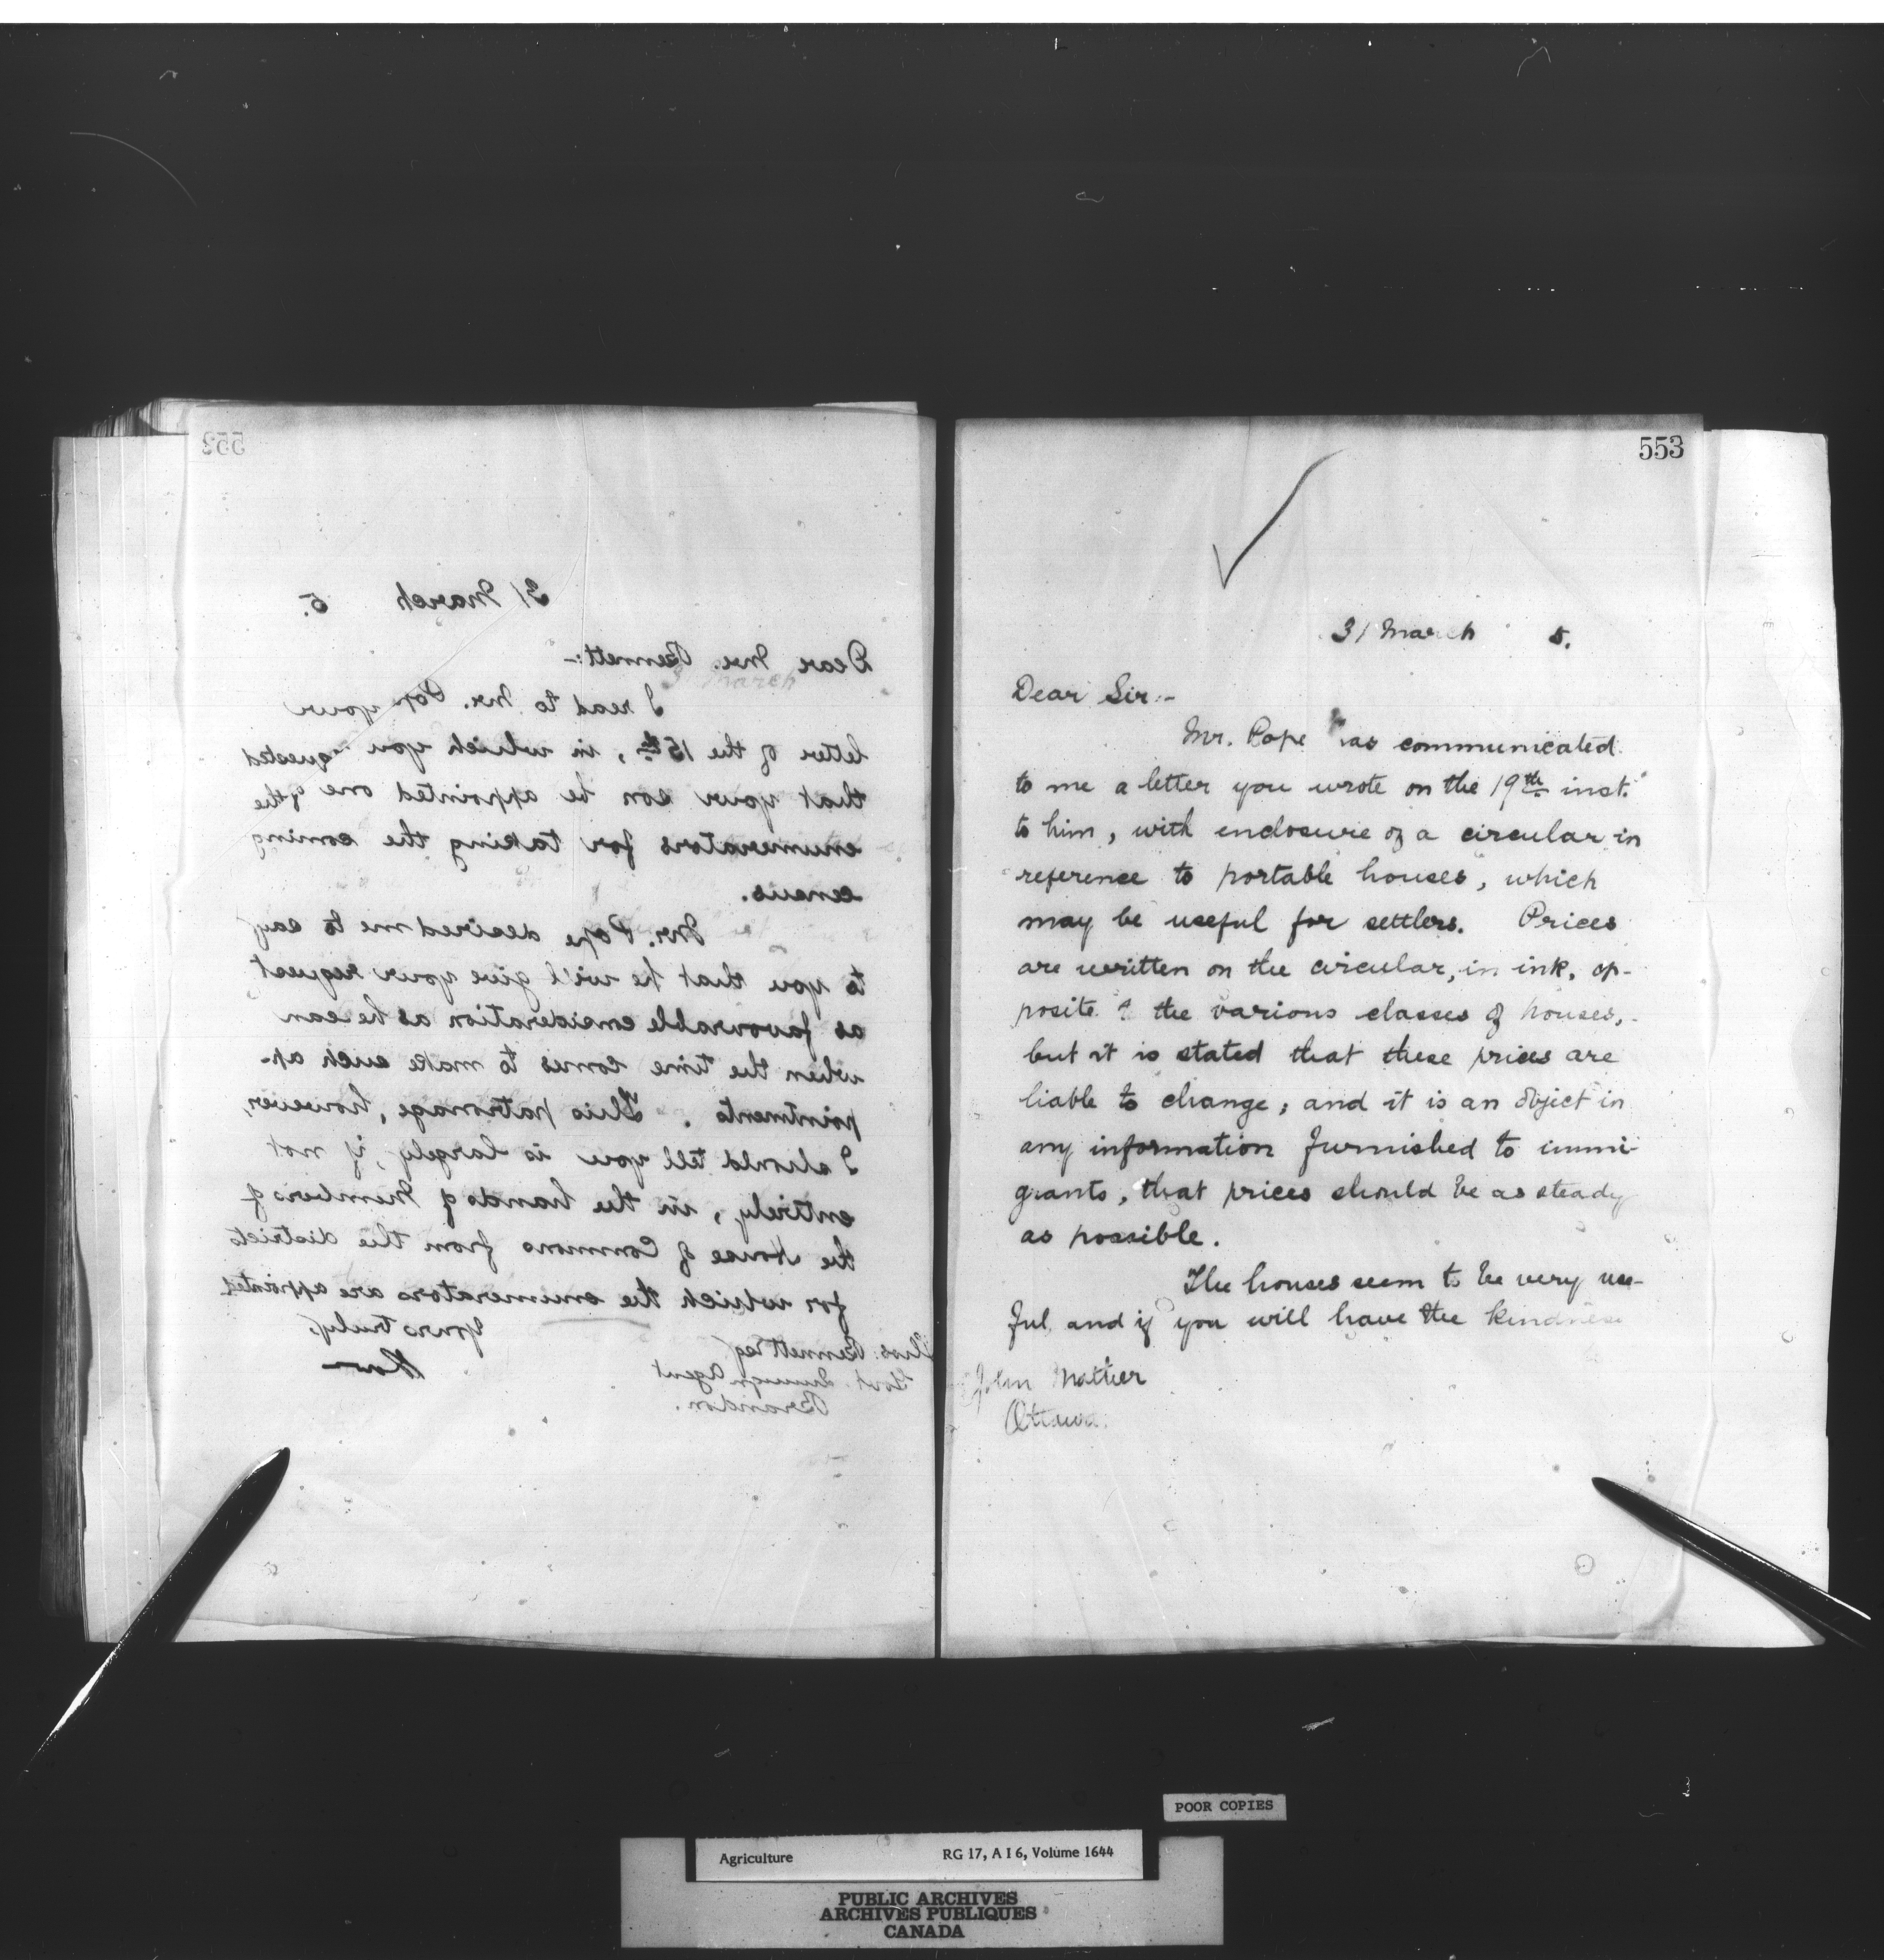 553
31 March 5.
Dear Mr. Bennett:-
I read to Mr. Pope your
letter of the 15th, in which you requested
that your son be appointed one of the
enumerators for taking the coming
census.
Mr. Pope desired me to say
to you that he will give your request
as favourable consideration as he can
when the time comes to make such ap-
pointments. This patronage, however,
I should tell you is largely, if not
entirely, in the hands of Members of
the House of Commons from the districts
for which the enumerators are appointed.
Yours truly,
Thos. Bennett Esq
Govt. Immign Agent
Brandon.
553
31 March 5.
Dear Sir:-
Mr. Pope has communicated
to me a letter you wrote on the 19th inst.
to him, with enclosure of a circular in
reference to portable houses, which
may be useful for settlers. Prices
are written on the circular, in ink, op-
posite to the various classes of houses,
but it is stated that these prices are
liable to change; and it is an object in
any information furnished to immi-
grants, that prices should be as steady
as possible.
The houses seem to be very use-
ful and if you will have the kindness
John Mather
Ottawa.
POOR COPIES
Agriculture RG 17, A I 6, Volume 1644
PUBLIC ARCHIVES
ARCHIVES PUBLIQUES
CANADA